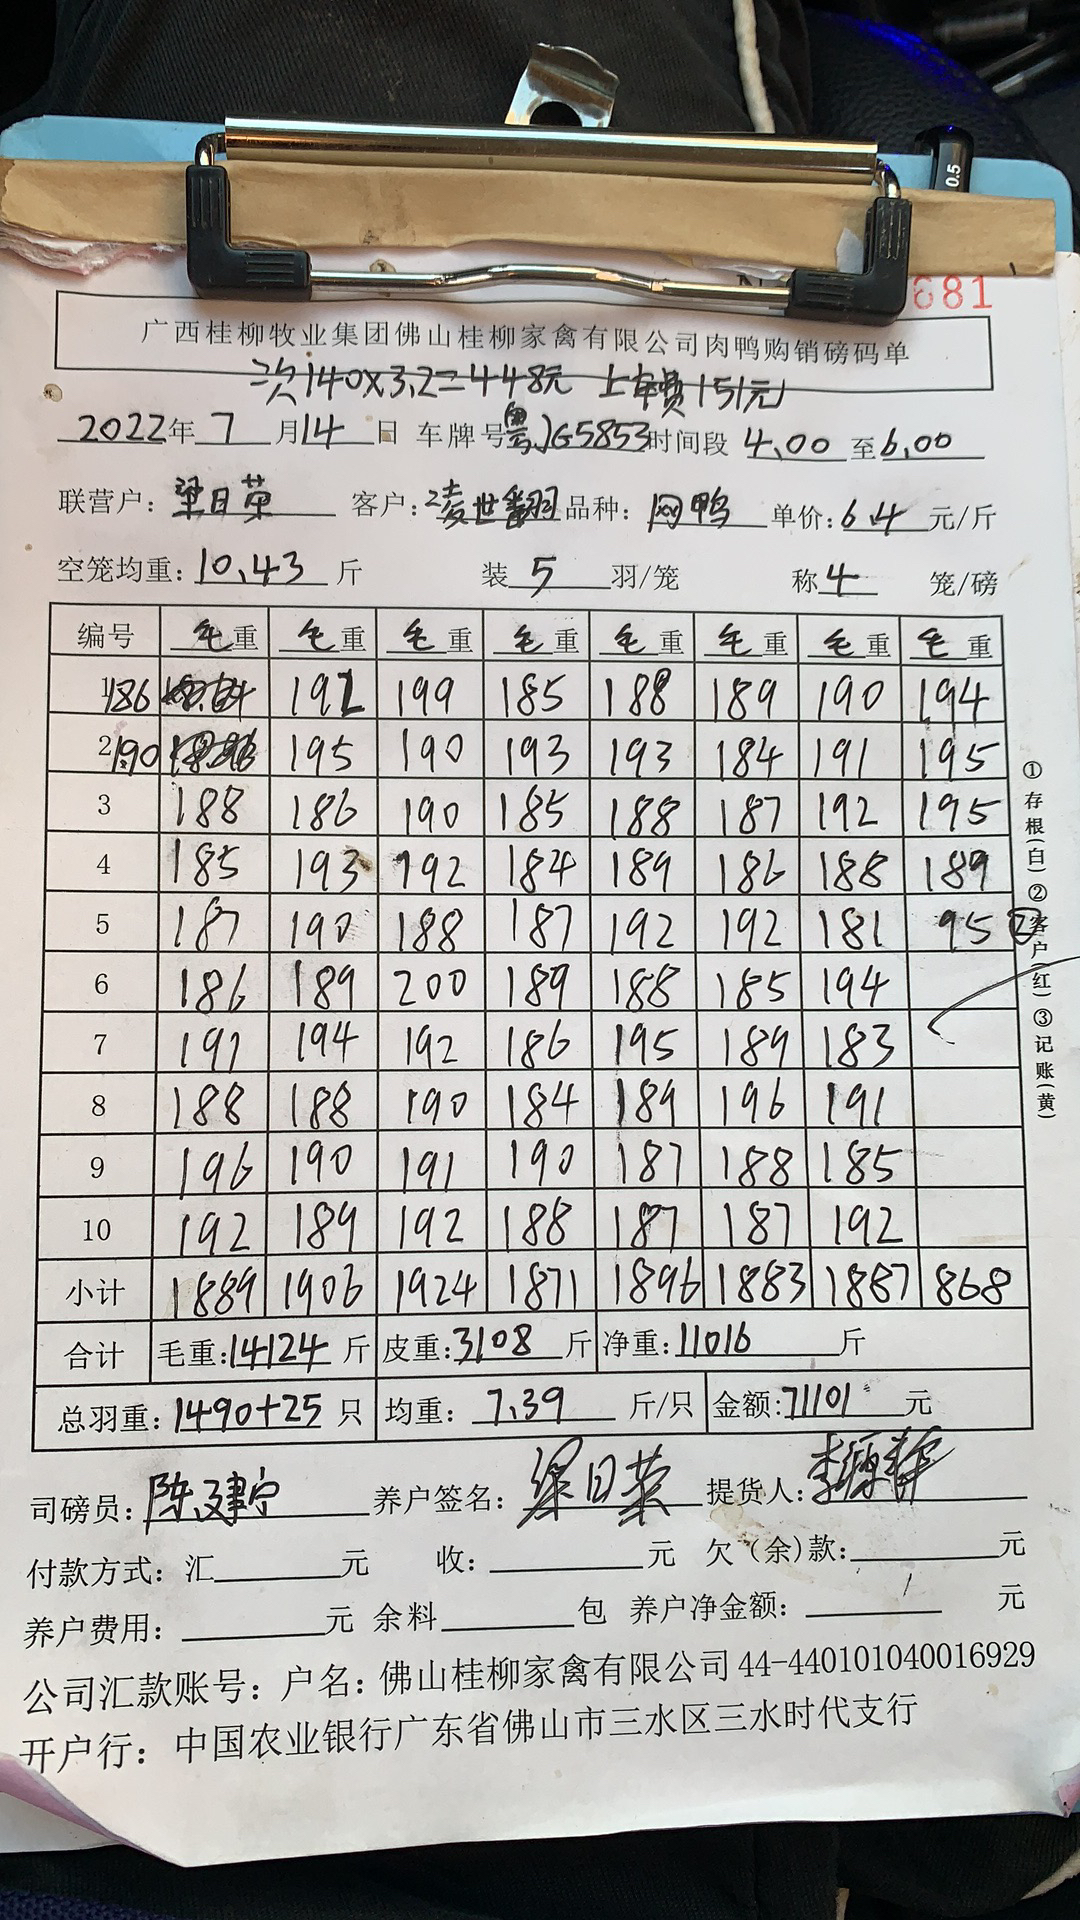 0.5
681
广西桂柳牧业集团佛山桂柳家禽有限公司肉鸭购销磅码单
次140X3.2=448元 上车费151元
2022年 7 月14 日 车牌号粤JG5853时间段 4.00 至6.00
联营户: 梁日荣 客户: 凌世翻 品种: 网鸭 单价: 6.4 元/斤
空笼均重: 10.43 斤 装 5 羽/笼 称 4 笼/磅
编号 毛重 毛重 毛重 毛重 毛重 毛重 毛重 毛重
1 186 192 199 185 188 189 190 194
2 190 195 190 193 193 184 191 195
3 188 186 190 185 188 187 192 195
4 185 193 192 184 189 186 188 189
5 187 190 188 187 192 192 181 95 ②
6 186 189 200 189 188 185 194
7 191 194 192 186 195 189 183
8 188 188 190 184 189 196 191
9 196 190 191 190 187 188 185
10 192 189 192 188 187 187 192
小计 1889 1906 1924 1871 1896 1883 1887 868
合计 毛重: 14124 斤 皮重: 3108 斤 净重: 11016 斤
总羽重: 1490+25 只 均重: 7.39 斤/只 金额: 71101 元
司磅员: 陈建宁 养户签名: 梁日荣 提货人: 李源静
付款方式: 汇 元 收: 元 欠(余)款: 元
养户费用: 元 余料 包 养户净金额: 元
公司汇款账号: 户名: 佛山桂柳家禽有限公司 44-440101040016929
开户行: 中国农业银行广东省佛山市三水区三水时代支行
①存根(白)②客户(红)③记账(黄)